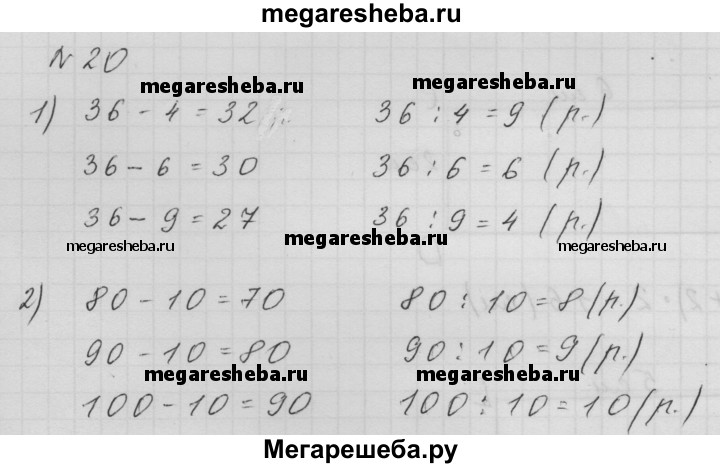 megaresheba.ru
№ 20
megaresheba.ru megaresheba.ru
1) 36 - 4 = 32 36 : 4 = 9 (р.)
36 - 6 = 30 36 : 6 = 6 (р.)
36 - 9 = 27 36 : 9 = 4 (р.)
megaresheba.ru megaresheba.ru megaresheba.ru
2) 80 - 10 = 70 80 : 10 = 8 (р.)
90 - 10 = 80 90 : 10 = 9 (р.)
megaresheba.ru megaresheba.ru
100 - 10 = 90 100 : 10 = 10 (р.)
Мегарешеба.ру